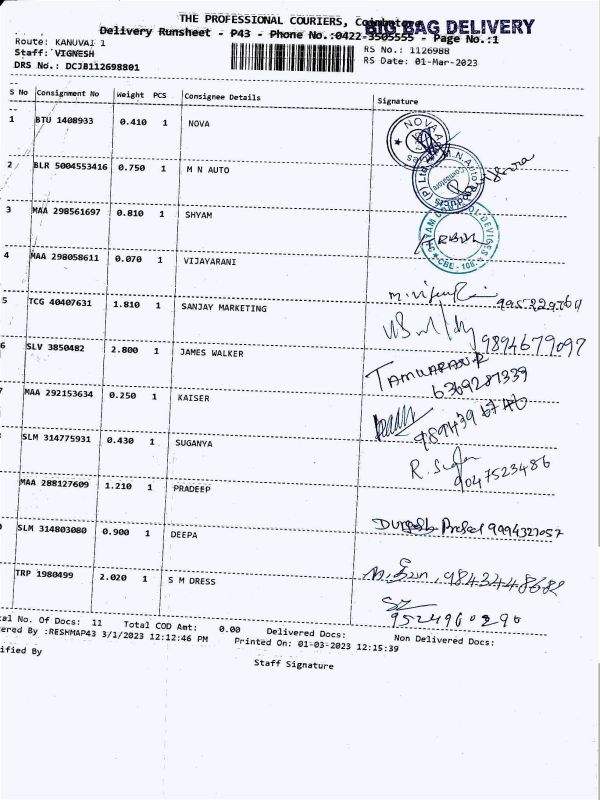 THE PROFESSIONAL COURIERS, Coimbatore
BIG BAG DELIVERY
Delivery Runsheet - P43 - Phone No.:0422-3505555 - Page No.:1
Route: KANUVAI 1
RS No.: 1126988
Staff: VIGNESH
RS Date: 01-Mar-2023
DRS No.: DCJ8112698801
S No Consignment No Weight PCS Consignee Details Signature
1 BTU 1408933 0.410 1 NOVA
NOVA
2 BLR 5004553416 0.750 1 M N AUTO
M.N.Auto Products (P) Ltd
Coimbatore
3 MAA 298561697 0.810 1 SHYAM
DEVICES
CBE - 108
4 MAA 298058611 0.070 1 VIJAYARANI
5 TCG 40407631 1.810 1 SANJAY MARKETING
9894679097
6 SLV 3850482 2.800 1 JAMES WALKER
6369287339
7 MAA 292153634 0.250 1 KAISER
SLM 314775931 0.430 1 SUGANYA
9047523486
MAA 288127609 1.210 1 PRADEEP
SLM 314803080 0.900 1 DEEPA
9994327057
TRP 1980499 2.020 1 S M DRESS
9524960290
al No. Of Docs: 11 Total COD Amt: 0.00 Delivered Docs: Non Delivered Docs:
ered By :RESHMAP43 3/1/2023 12:12:46 PM Printed On: 01-03-2023 12:15:39
ified By
Staff Signature